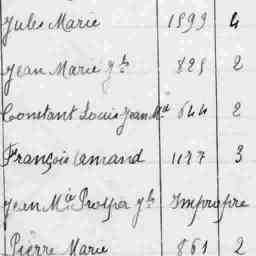 Jules Marie 1599 4
Jean Marie Yᵛˢ 825 2
Constant Louis Jean Mⁱᵉ 644 2
François Armand 1127 3
Jean Mⁱᵉ Prosper Yᵛˢ Impropre
Pierre Marie 861 2